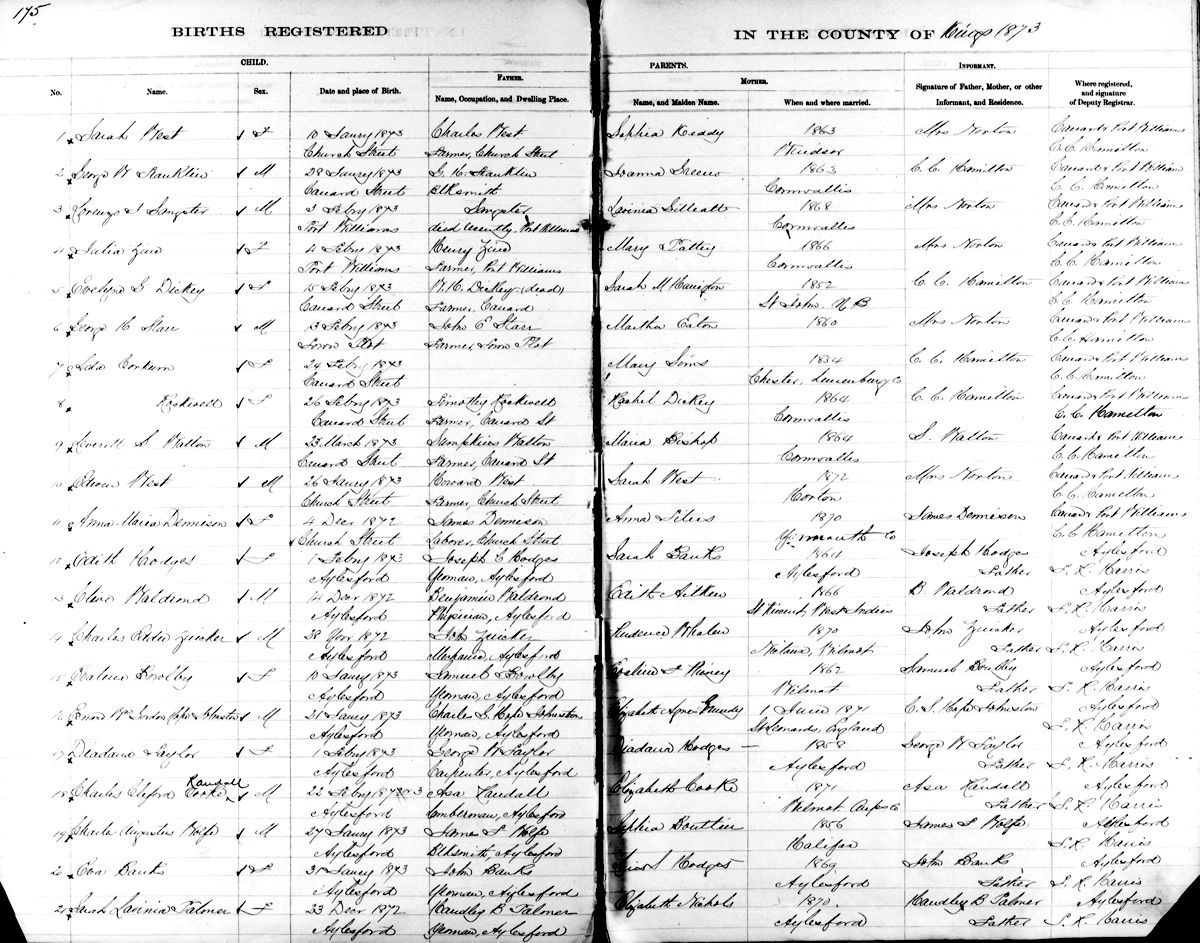 175
BIRTHS REGISTERED IN THE COUNTY OF Kings 1873
CHILD. PARENTS. INFORMANT.
FATHER. MOTHER.
No. Name. Sex. Date and place of Birth. Name, Occupation, and Dwelling Place. Name, and Maiden Name. When and where married. Signature of Father, Mother, or other Informant, and Residence. Where registered, and signature of Deputy Registrar.
1 Sarah West F 10 Jany 1873 Charles West Sophia Keddy 1863 Mrs Norton Canard & Port Williams
Church Street Farmer, Church Street Windsor C. C. Hamilton
2 George W Franklin M 28 Jany 1873 G. H. Franklin Joanna Greeno 1863 C. C. Hamilton Canard & Port Williams
Canard Street Blksmith Cornwallis C. C. Hamilton
3 Lorenzo J Sangster M 3 Febry 1873 Sangster Lavinia Gilliatt 1868 Mrs Norton Canard & Port Williams
Port Williams died recently, Port Williams Cornwallis C. C. Hamilton
4 Julia F 4 Febry 1873 Henry Mary 1866 Mrs Norton Canard & Port Williams
Port Williams Farmer, Port Williams Cornwallis C. C. Hamilton
5 Evelyn G Dickey F 15 Febry 1873 W. H. Dickey (dead) Sarah M Harrington 1852 C. C. Hamilton Canard & Port Williams
Canard Street Farmer, Canard St John. N. B C. C. Hamilton
6 George H Starr M 13 Febry 1873 John E Starr Martha Eaton 1860 Mrs Norton Canard & Port Williams
Town Plot Farmer, Town Plot Cornwallis C. C. Hamilton
7 Ida Conkum F 24 Febry 1873 Mary Sims 1834 C. C. Hamilton Canard & Port Williams
Canard Street Chester, Lunenburg Co C. C. Hamilton
8 Rockwell F 26 Febry 1873 Timothy Rockwell Rachel Dickey 1864 C. C. Hamilton Canard & Port Williams
Canard Street Farmer, Canard St Cornwallis C. C. Hamilton
9 Everett S Walton M 23 March 1873 Walton Maria Bishop 1864 S. Walton Canard & Port Williams
Canard Street Farmer, Canard St Cornwallis C. C. Hamilton
10 West M 26 Jany 1873 Howard West Sarah West 1872 Mrs Norton Canard & Port Williams
Church Street Farmer, Church Street Horton C. C. Hamilton
11 Anna Maria Dennison F 4 Decr 1872 James Dennison Anna 1870 James Dennison Canard & Port Williams
Church Street Laborer, Church Street Yarmouth Co C. C. Hamilton
12 Edith Hodges F 1 Febry 1873 Joseph C Hodges Sarah Banks 1864 Joseph Hodges Aylesford
Aylesford Yeoman, Aylesford Aylesford Father S. K. Harris
13 Clive Waldrond M 14 Decr 1872 Benjamin Waldrond Edith Aitken 1866 B. Waldrond Aylesford
Aylesford Physician, Aylesford St Vincent, West Indies Father S. K. Harris
14 Charles Zwicker M 28 Novr 1872 John Zwicker Prudence Whalen 1870 John Zwicker Aylesford
Aylesford Mechanic, Aylesford Nictaux, Wilmot Father S. K. Harris
15 Evalena Bowlby F 10 Jany 1873 Samuel Bowlby Evaline F Piney 1862 Samuel Bowlby Aylesford
Aylesford Yeoman, Aylesford Wilmot Father S. K. Harris
16 Wm Gordon Hope Johnston M 21 Jany 1873 Charles S. Hope Johnstone Elizabeth Agnes Grundy 1 June 1871 C. S. Hope Johnston Aylesford
Aylesford Yeoman, Aylesford St Leonards, England S. K. Harris
17 Diadama Saylor F 1 Febry 1873 George W Saylor Diadama Hodges — 1858 George W Saylor Aylesford
Aylesford Carpenter, Aylesford Aylesford Father S. K. Harris
18 Charles Cliford Cooke Randall M 22 Febry 1873 Asa Randall Elizabeth Cooke 1871 Asa Randall Aylesford
Aylesford Lumberman, Aylesford Wilmot Annps Co Father S. K. Harris
19 Charles Augustus Wolfe M 27 Jany 1873 James F Wolfe Sophia Bouttier 1856 James F Wolfe Aylesford
Aylesford Blksmith, Aylesford Halifax S. K. Harris
20 Eva Banks F 31 Jany 1873 John Banks Hodges 1869 John Banks Aylesford
Aylesford Yeoman, Aylesford Aylesford Father S. K. Harris
21 Sarah Lavinia Palmer F 23 Decr 1872 Handley B Palmer Elizabeth Nichols 1870 Handley B Palmer Aylesford
Aylesford Yeoman, Aylesford Aylesford Father S. K. Harris